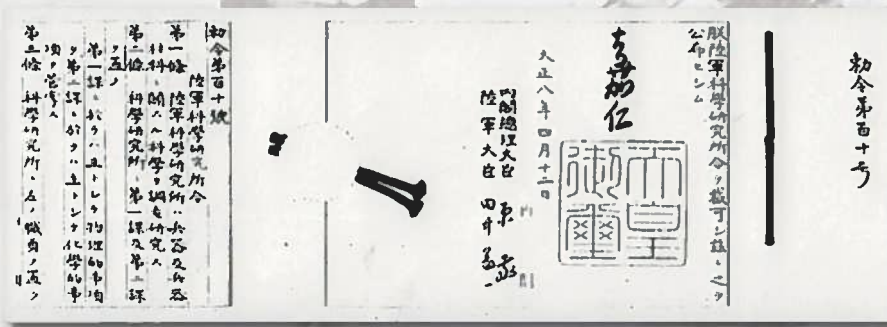 勅令第百十号
朕陸軍科學研究所令ヲ裁可シ茲ニ之ヲ
公布セシム
嘉仁
天皇御璽
大正八年四月十二日
内閣總理大臣 原 敬
陸軍大臣 田中義一
内閣
勅令第百十號
陸軍科學研究所令
第一條 陸軍科學研究所ハ兵器及兵器
材料ニ關スル科學ヲ調査研究ス
第二條 科學研究所ニ第一課及第二課
ヲ置ク
第一課ニ於テハ主トシテ物理的事項
ヲ第二課ニ於テハ主トシテ化學的事
項ヲ管掌ス
第三條 科學研究所ニ左ノ職員ヲ置ク